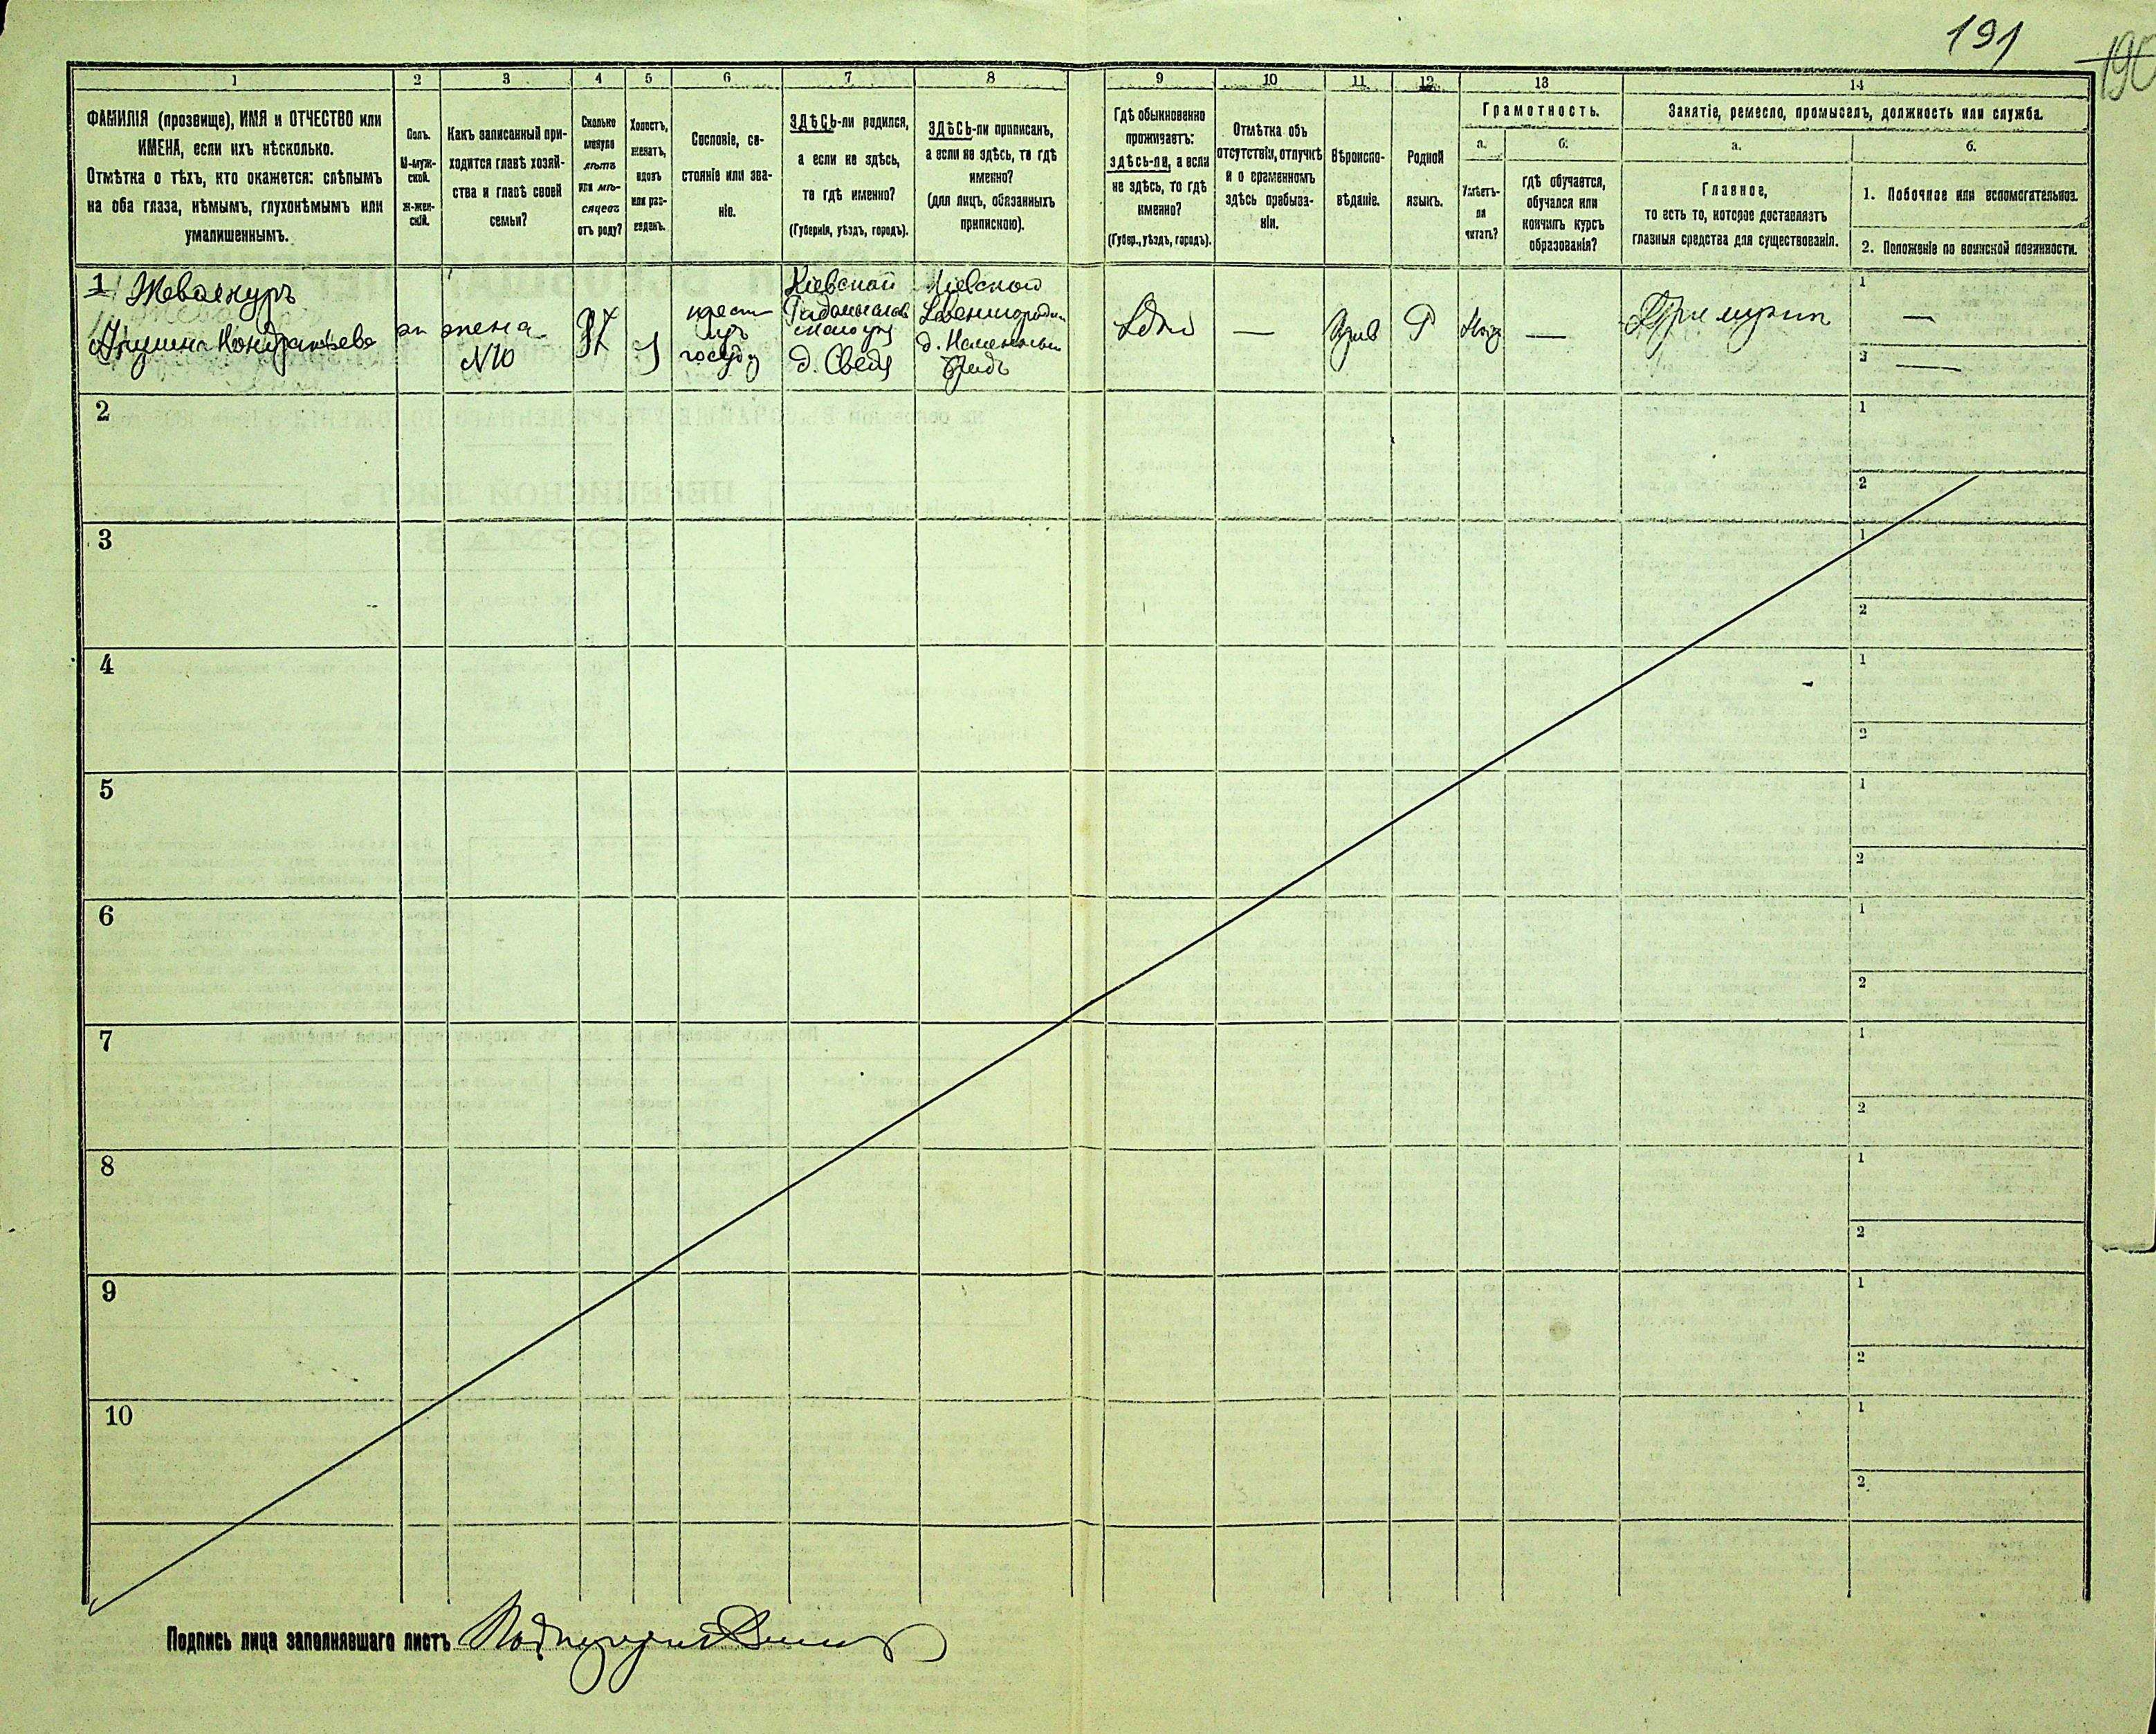 191
190
1
2
3
4
5
6
7
8
9
10
11
12
13
14
ФАМИЛІЯ (прозвище), ИМЯ и ОТЧЕСТВО или
ИМЕНА, если ихъ нѣсколько.
Отмѣтка о тѣхъ, кто окажется: слѣпымъ
на оба глаза, нѣмымъ, глухонѣмымъ или
умалишеннымъ.
Полъ.
М-муж-
ской.
Ж-жен-
скій.
Какъ записанный при-
ходится главѣ хозяй-
ства и главѣ своей
семьи?
Сколько
минуло
лѣтъ
или мѣ-
сяцевъ
отъ роду?
Холостъ,
женатъ,
вдовъ
или раз-
веденъ.
Сословіе, со-
стояніе или зва-
ніе.
ЗДѢСЬ-ли родился,
а если не здѣсь,
то гдѣ именно?
(Губернія, уѣздъ, городъ).
ЗДѢСЬ-ли приписанъ,
а если не здѣсь, то гдѣ
именно?
(для лицъ, обязанныхъ
припискою).
Гдѣ обыкновенно
проживаетъ:
здѣсь-ли, а если
не здѣсь, то гдѣ
именно?
(Губер., уѣздъ, городъ).
Отмѣтка объ
отсутствіи, отлучкѣ
и о временномъ
здѣсь пребыва-
ніи.
Вѣроиспо-
вѣданіе.
Родной
языкъ.
Грамотность.
а.
Умѣетъ-
ли
читать?
б.
гдѣ обучается,
обучался или
кончилъ курсъ
образованія?
Занятіе, ремесло, промыселъ, должность или служба.
а.
Главное,
то есть то, которое доставляетъ
главныя средства для существованія.
б.
1. Побочное или вспомогательное.
2. Положеніе по воинской повинности.
1
Кондратьева
жена
N10
крест
изъ
Кіевской
д.
Кіевской
д.
Р
—
1 —
2 —
2
1
2
3
1
2
4
1
2
5
1
2
6
1
2
7
1
2
8
1
2
9
1
2
10
1
2
Подпись лица заполнявшаго листъ